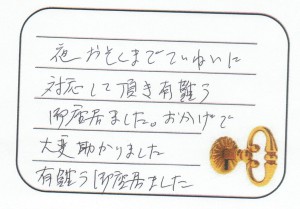 夜おそくまでていねいに
対応して頂き有難う
御座居ました。おかげで
大変助かりました
有難う御座居ました